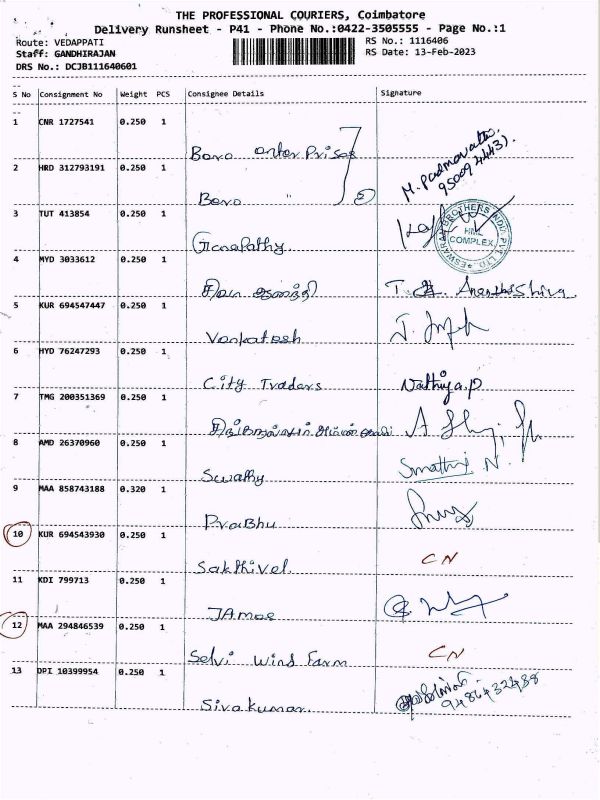 THE PROFESSIONAL COURIERS, Coimbatore
Delivery Runsheet - P41 - Phone No.:0422-3505555 - Page No.:1
Route: VEDAPPATI
Staff: GANDHIRAJAN
DRS No.: DCJB111640601
RS No.: 1116406
RS Date: 13-Feb-2023
S No Consignment No Weight PCS Consignee Details Signature
1 CNR 1727541 0.250 1
Bero enterprises
2 HRD 312793191 0.250 1
Bero " 2
M. Padmavathi
95009 4443).
3 TUT 413854 0.250 1
Ganapathy
BROTHERS INDU PVT. LTD. ESWARAN
HML COMPLEX
4 MYD 3033612 0.250 1
சிவா ஆனந்தி T. Ananthi Shiva
5 KUR 694547447 0.250 1
Venkatesh
6 HYD 76247293 0.250 1
City Traders Nathiya.P
7 TMG 200351369 0.250 1
8 AMD 26370960 0.250 1
Swathy Smathi N.
9 MAA 858743188 0.320 1
Prabhu
10 KUR 694543930 0.250 1
Sakthivel CN
11 KDI 799713 0.250 1
JAmes
12 MAA 294846539 0.250 1
Selvi Wind Farm CN
13 DPI 10399954 0.250 1
Sivakumar 9486432488